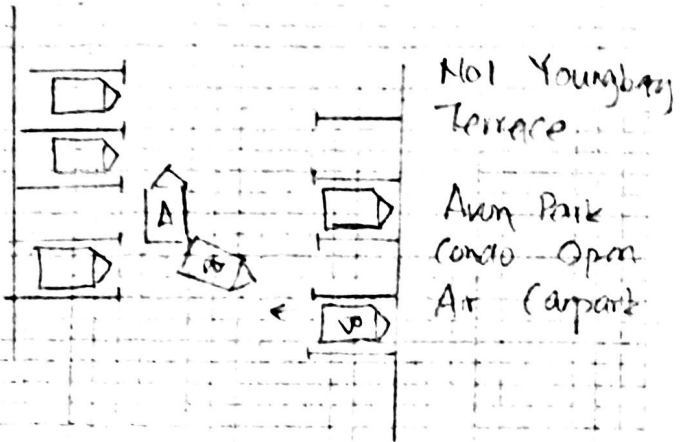 No1 Youngberg
Terrace
Avon Park
Condo Open
Air Carpark
A